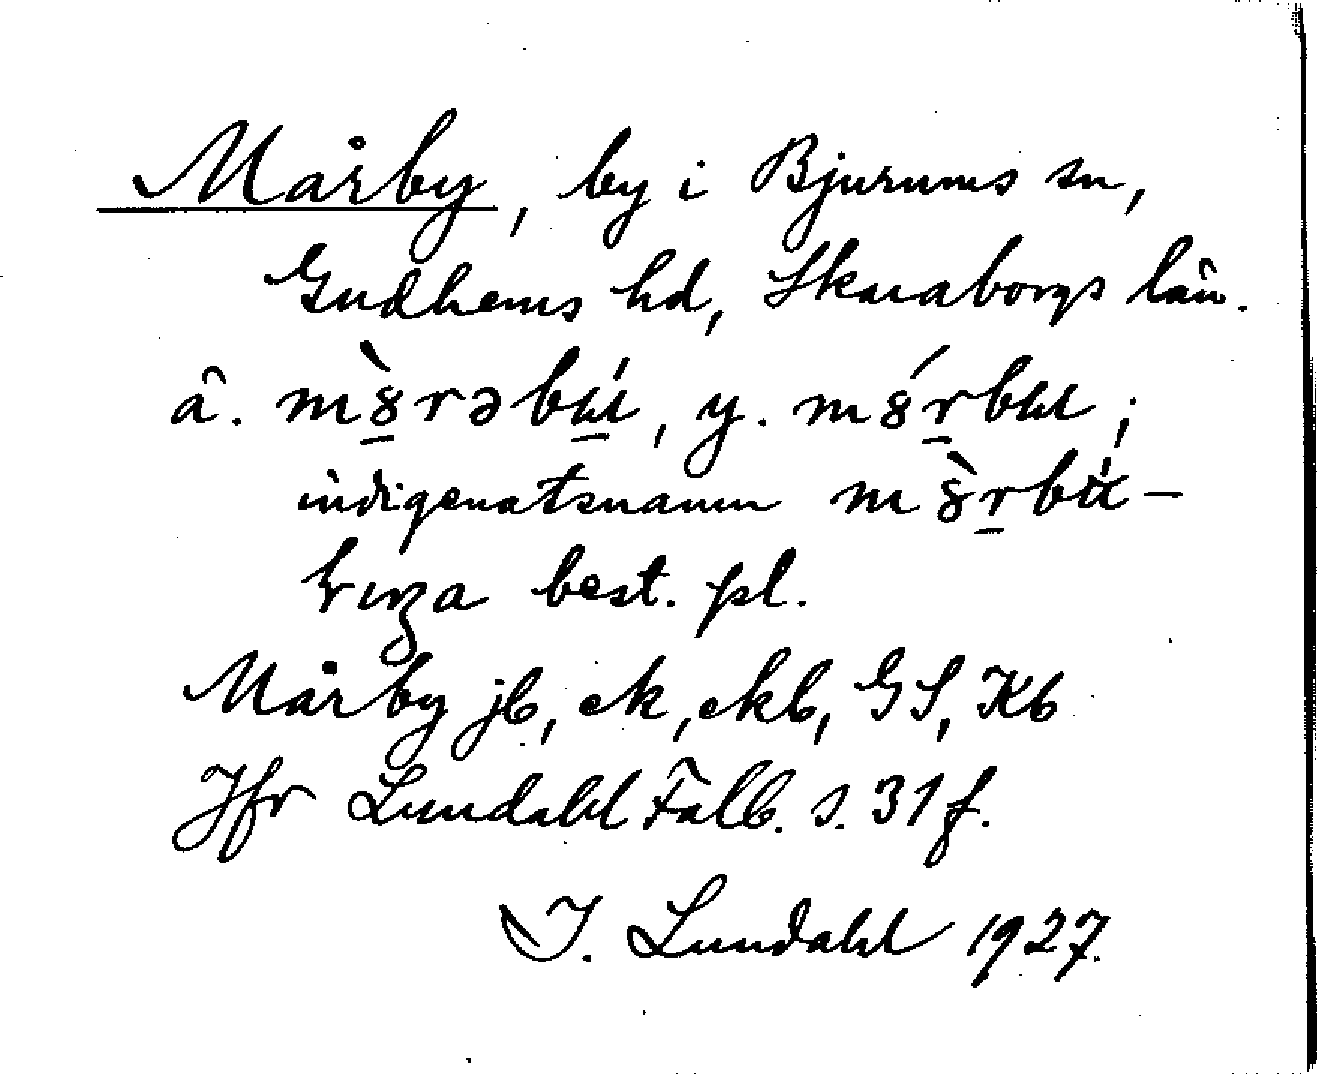 Mårby, by i Bjurums sn,
Gudhems hd, Skaraborgs län.
ä. m8̠̀rəbú̠, y. m8́r̠bu;
indigenatsnamn m8̀r̠bú-
best. pl.
Mårby jb, ek, ekb, GS, Kb
Jfr Lundahl Falb. s. 31 f.
I. Lundahl 1927.